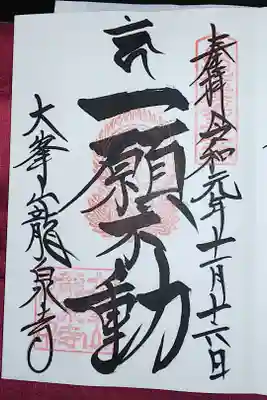 奉拝 令和元年十一月十六日
一願不動
大峯山龍泉寺